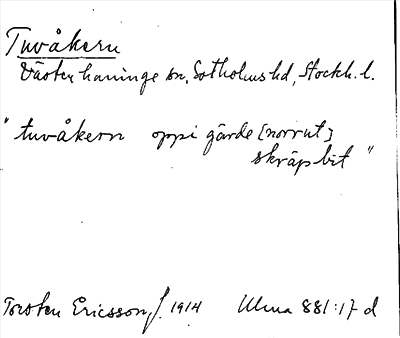 Tuvåkern
Västerhaninge sn, Sotholms hd, Stockh. l.
"tuvåkern oppi gärde [norrut]
skräpbit"
Torsten Ericsson, f. 1914 Ulma 881:17 d